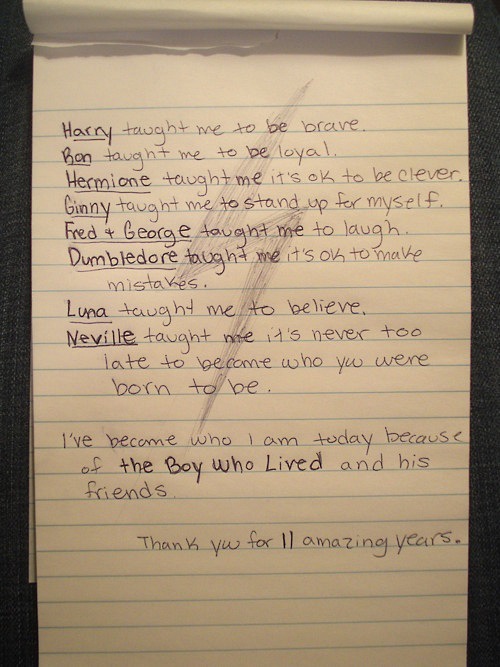 Harry taught me to be brave.
Ron taught me to be loyal.
Hermione taught me it's ok to be clever.
Ginny taught me to stand up for myself.
Fred + George taught me to laugh.
Dumbledore taught me it's ok to make
mistakes.
Luna taught me to believe.
Neville taught me it's never too
late to become who you were
born to be.
I've become who I am today because
of the Boy Who Lived and his
friends.
Thank you for 11 amazing years.